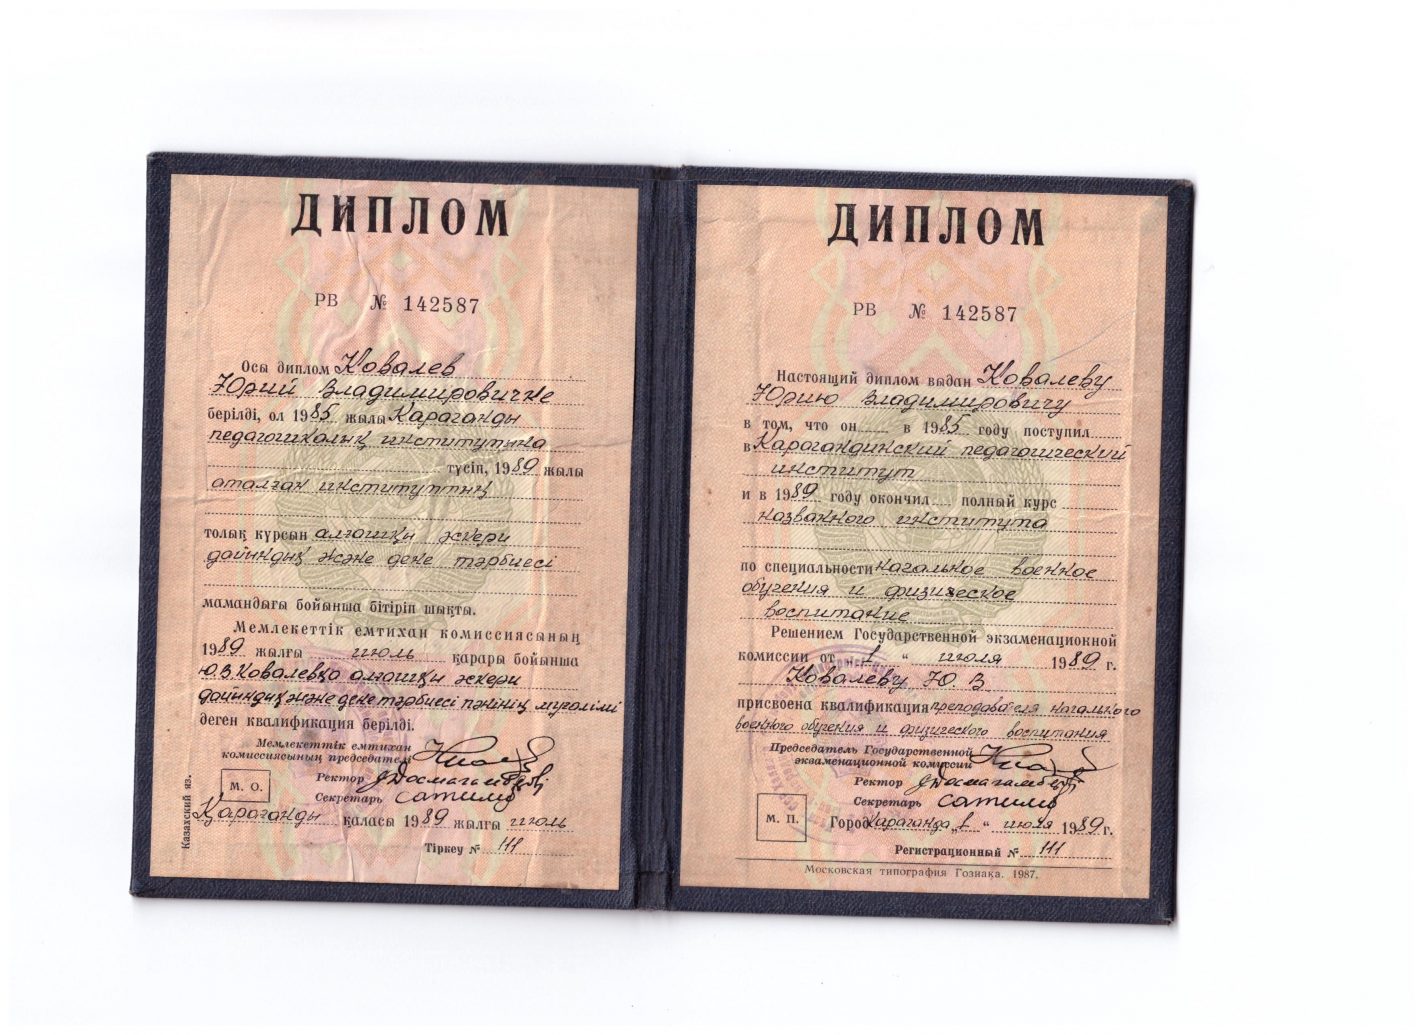 ДИПЛОМ
РВ № 142587
Осы диплом Ковалев
Юрий Владимировичке
берілді, ол 1985 жылы Караганды
педагогикалық институтына
түсіп, 1989 жылы
аталған институттың
толық курсын алғашқы әскери
дайындық және дене тәрбиесі
мамандығы бойынша бітіріп шықты.
Мемлекеттік емтихан комиссиясының
1989 жылғы июль қарары бойынша
Ю.В Ковалевқа алғашқы әскери
дайындық және дене тәрбиесі пәнінің мұғалімі
деген квалификация берілді.
Мемлекеттік емтихан
комиссиясының председателі
Ректор
М. О.
Секретарь
Қарағанды қаласы 1989 жылғы июль
Тіркеу № 111
Казахский яз.
ДИПЛОМ
РВ № 142587
Настоящий диплом выдан Ковалеву
Юрию Владимировичу
в том, что он в 1985 году поступил
в Карагандинский педагогический
институт
и в 1989 году окончил полный курс
названного института
по специальности начальное военное
обучения и физическое
воспитание
Решением Государственной экзаменационной
комиссии от 1 " июля 1989 г.
Ковалеву Ю. В
присвоена квалификация преподователя начального
военного обучения и физического воспитания
Председатель Государственной
экзаменационной комиссии
Ректор
Секретарь
М. П.
Город Караганда „1 " июля 1989 г.
Регистрационный № 111
Московская типография Гознака. 1987.